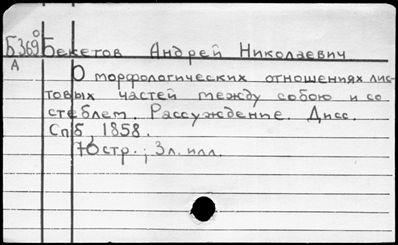 Б369⁰ Бекетов Андрей Николаевич
А
О морфологических отношениях лис-
товых частей между собою и со
стеблем. Рассуждение. Дисс.
Спб, 1858.
76 стр.; 3 л. илл.